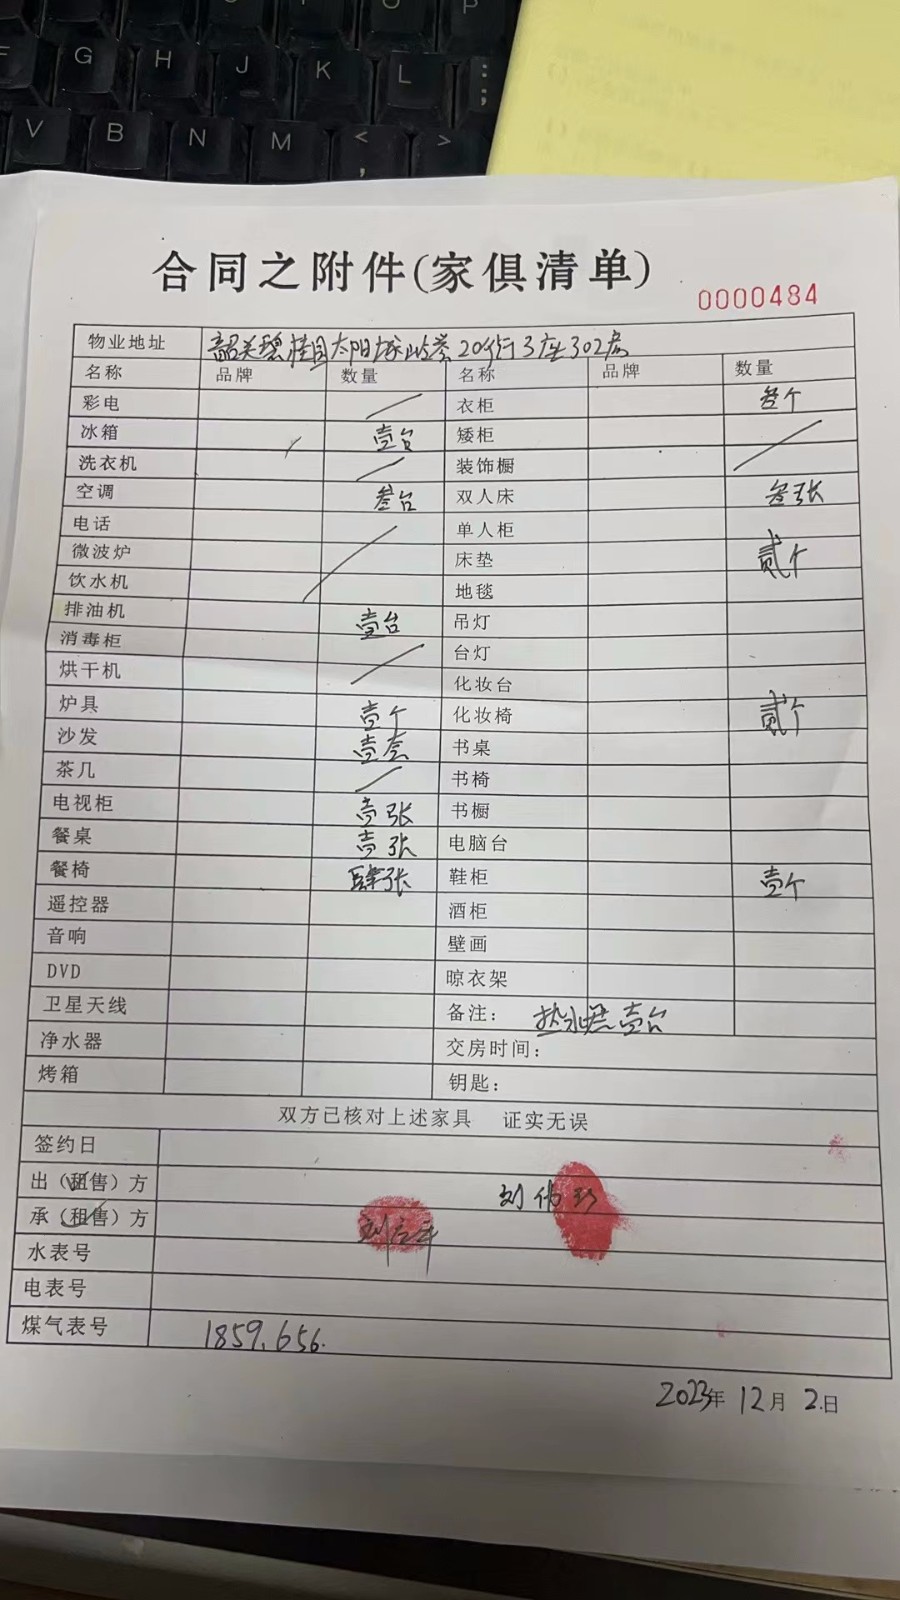 O P
F G H J K L : ;
V B N M < , >
合同之附件(家俱清单)
0000484
物业地址 韶关碧桂园太阳城 20街3座302房
名称 品牌 数量 名称 品牌 数量
彩电 衣柜 叁个
冰箱 壹台 矮柜
洗衣机 装饰橱
空调 叁台 双人床 叁张
电话 单人柜
微波炉 床垫 贰个
饮水机 地毯
排油机 壹台 吊灯
消毒柜 台灯
烘干机 化妆台
炉具 壹个 化妆椅 贰个
沙发 壹套 书桌
茶几 书椅
电视柜 壹张 书橱
餐桌 壹张 电脑台
餐椅 肆张 鞋柜 壹个
遥控器 酒柜
音响 壁画
DVD 晾衣架
卫星天线 备注: 热水器壹台
净水器 交房时间:
烤箱 钥匙:
双方已核对上述家具 证实无误
签约日
出(租售)方 刘伟
承(租售)方 刘
水表号
电表号
煤气表号 1859.656.
2023年12月2日